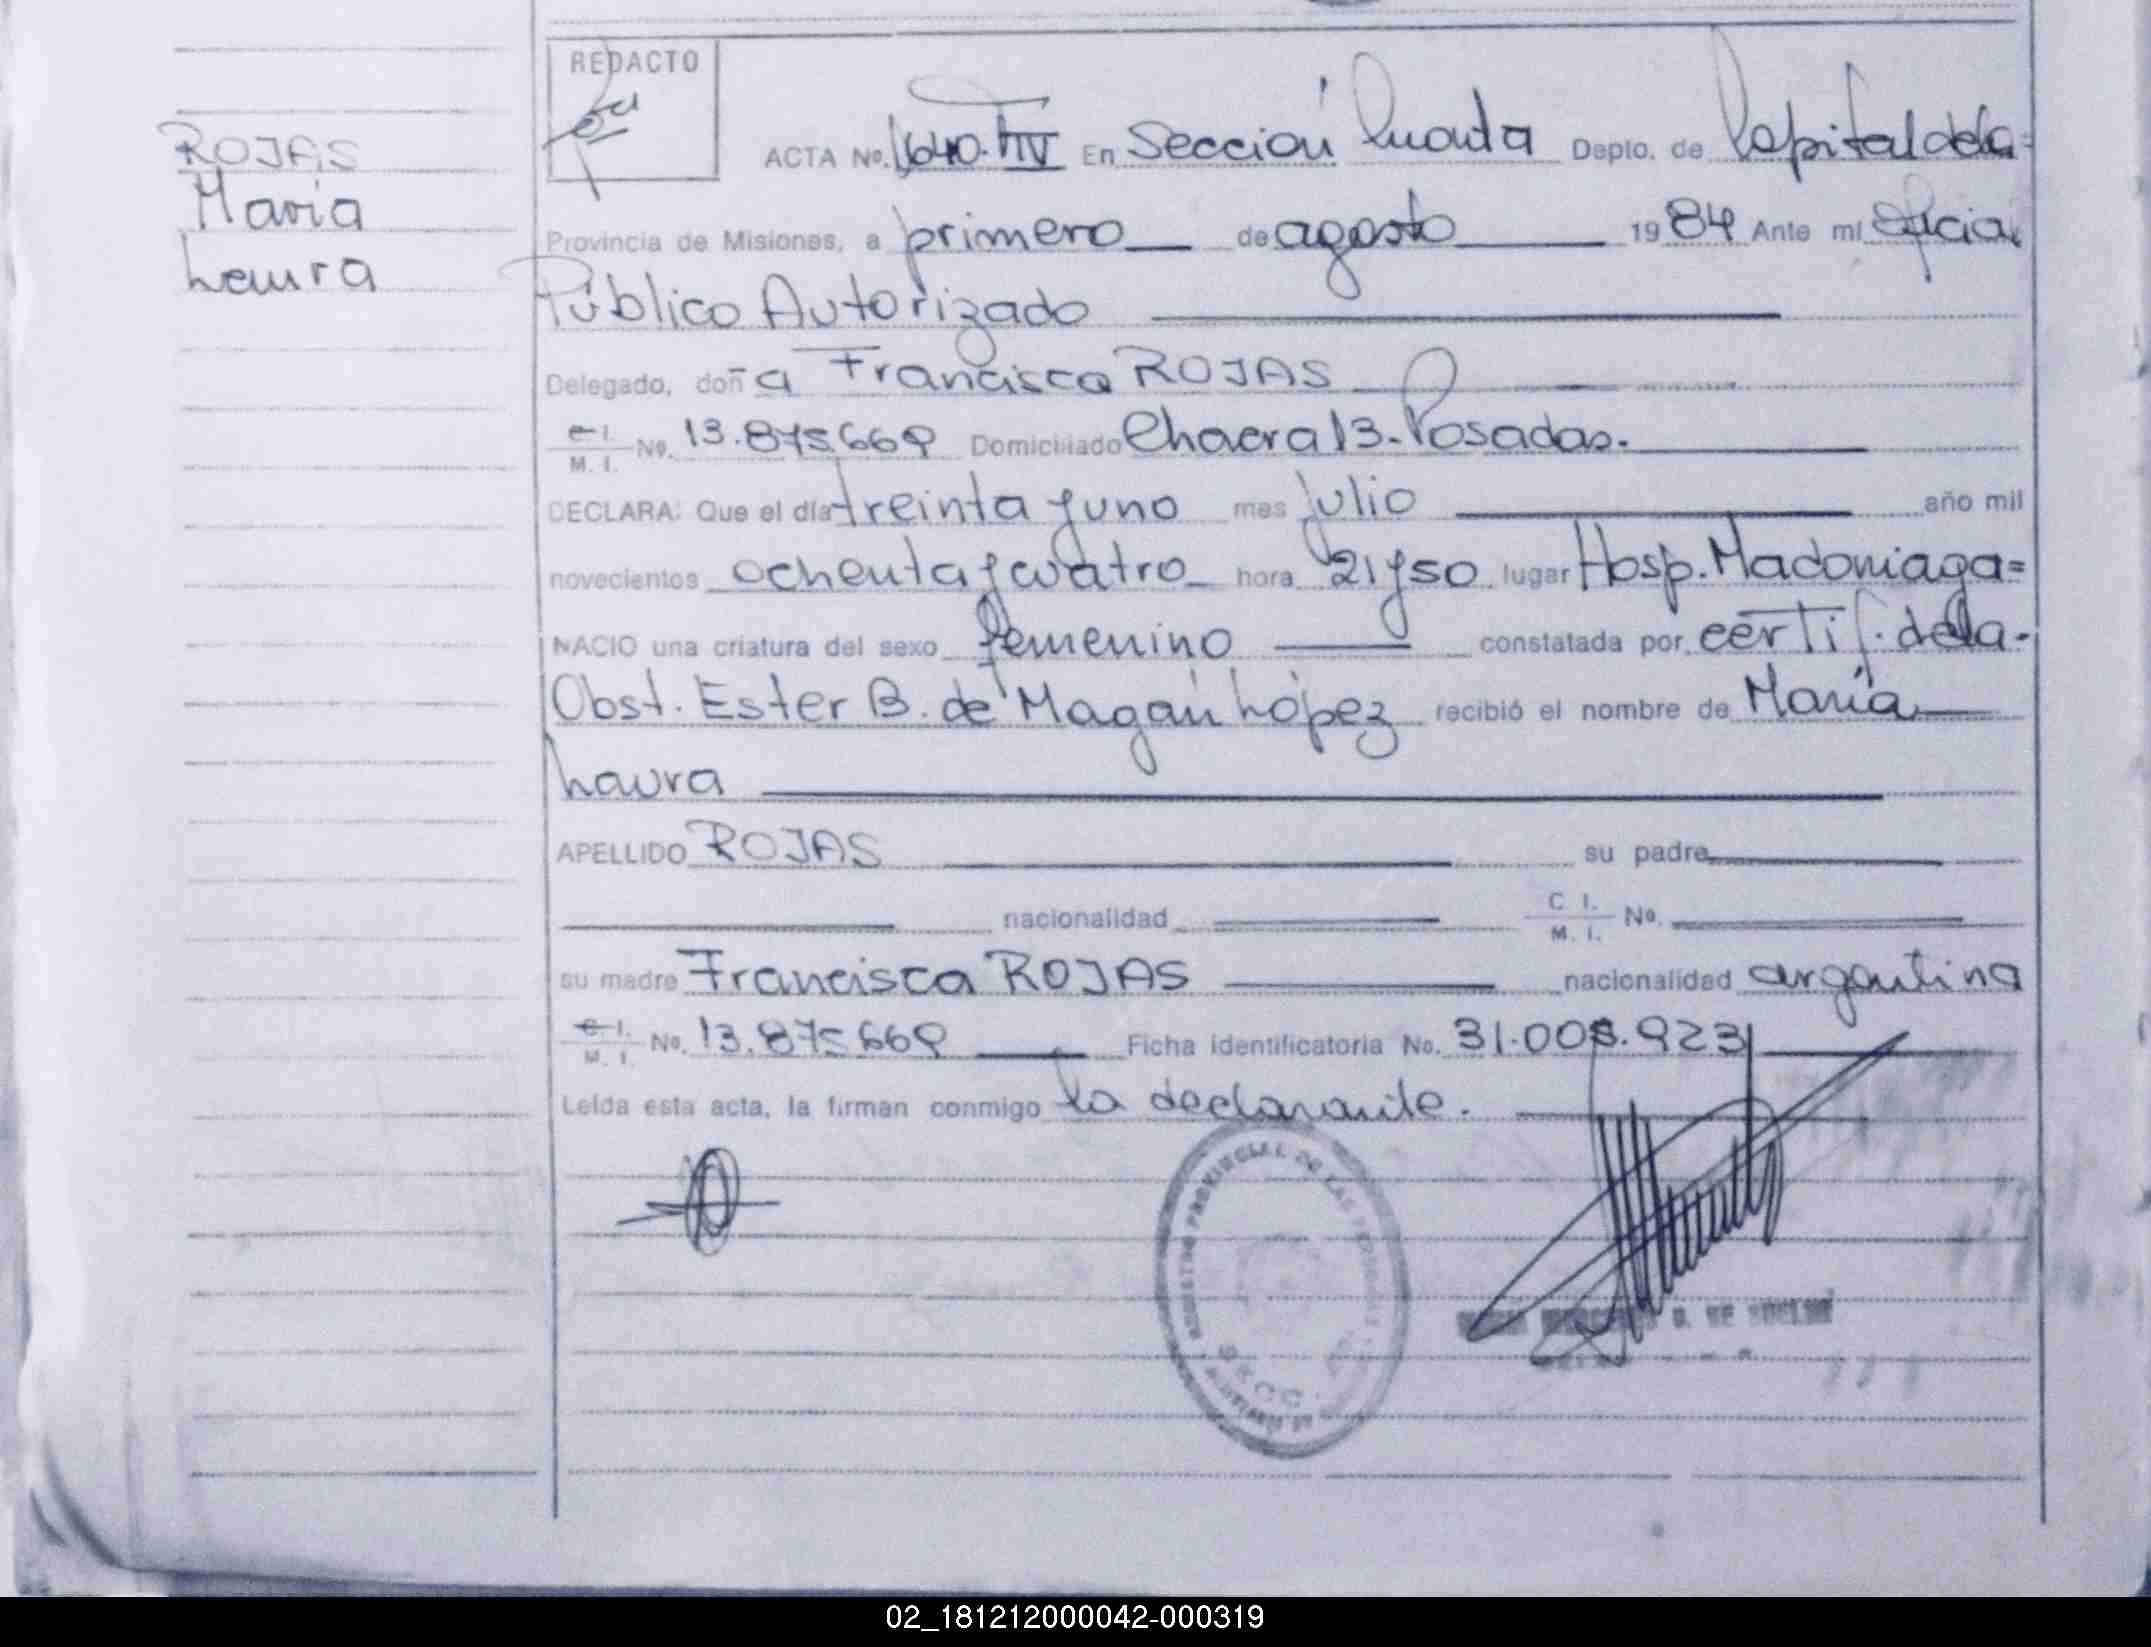 ROJAS
María
Laura
REDACTO
ACTA No. 1640. T IV En Sección Cuarta Depto. de Capital de la=
Provincia de Misiones, a primero de agosto 1984 Ante mi Oficial
Público Autorizado
Delegado, doña Francisca ROJAS
C. I.
M. I. No. 13.875.669 Domiciliado Chacra 13. Posadas.
DECLARA: Que el día treinta y uno mes julio año mil
novecientos ochenta y cuatro hora 21 y 50 lugar Hosp. Madoniaga=
NACIO una criatura del sexo femenino constatada por certif. de la.
Obst. Ester B. de Magán López recibió el nombre de María
Laura
APELLIDO ROJAS su padre
nacionalidad C. I.
M. I. No.
su madre Francisca ROJAS nacionalidad argentina
C. I.
M. I. No. 13.875.669 Ficha identificatoria No. 31.008.923
Leída esta acta, la firman conmigo la declarante.
REGISTRO PROVINCIAL DE LAS PERSONAS
02_181212000042-000319